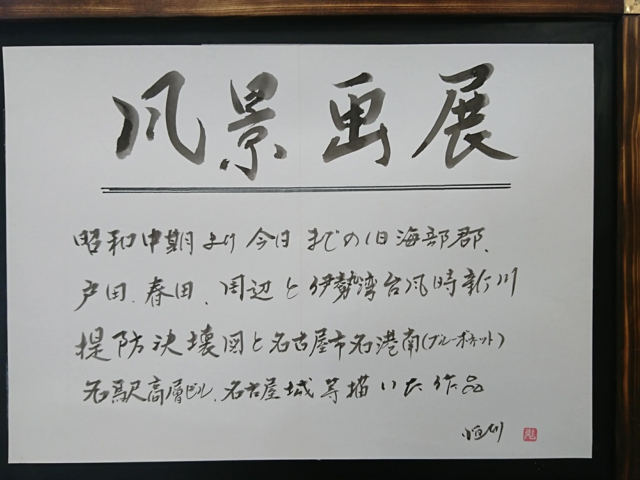 風景画展
昭和中期より今日までの旧海部郡、
戸田、春田、周辺と伊勢湾台風時新川
提防決壊図と名古屋市名港南(ブルーボネット)
名駅高層ビル、名古屋城等描いた作品